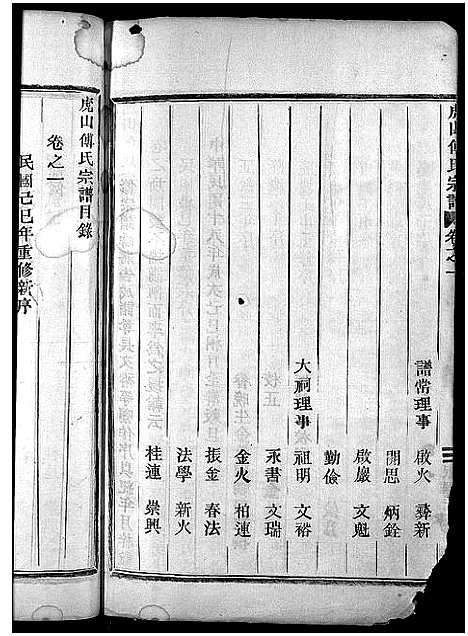 虎山傅氏宗譜 卷之一
譜常理事 啟火 彝新
開思 炳銓
啟巖 文魁
勤儉
大祠理事 祖明 文裕
永書 文瑞
金火 柏連
振金 春法
法學 新火
桂連 崇興
虎山傅氏宗譜目錄
卷之一
民國己巳年重修新序